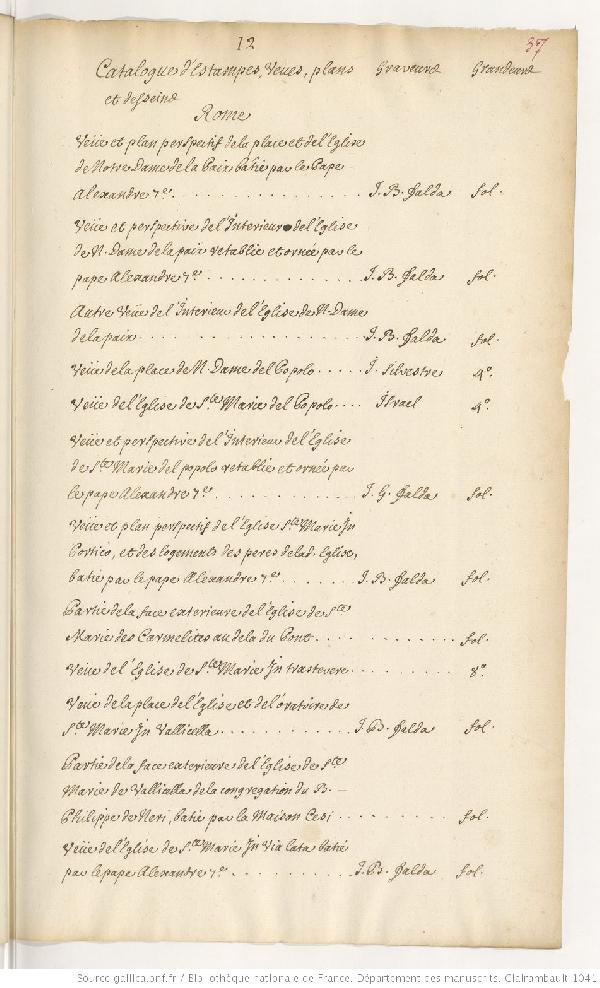 12
37
Catalogue d'Estampes, Veües, plans Graveurs Grandeurs
et desseins
Rome
Veüe et plan perspectif de la place et de l'Eglise
de Notre Dame de la Paix batie par le Pape
Alexandre 7e. J. B. Falda fol.
Veüe et perspective de l'Interieur de l'Eglise
de N. Dame de la paix retablie et ornée par le
pape Alexandre 7e J. B. Falda fol.
Autre Veüe de l'Interieur de l'Eglise de N. Dame
de la paix J. B. Falda fol.
Veüe de la place de N. Dame del Popolo J. Silvestre 4°.
Veüe de l'Eglise de Ste Marie del Popolo Israel 4°.
Veüe et perspective de l'Interieur de l'Eglise
de Ste Marie del popolo retablie et ornée par
le pape Alexandre 7e J. G. Falda fol.
Veüe et plan perspectif de l'Eglise Ste Marie Jn
Portico, et des logements des peres de lad. Eglise,
batie par le pape Alexandre 7e J. B. Falda fol.
Partie de la face exterieure de l'Eglise de Ste
Marie des Carmelites au dela du Pont fol.
Veüe de l'Eglise de Ste Marie Jn trastevere 8°.
Veüe de la place de l'Eglise et de l'oratoire de
Ste Marie Jn Vallicella J. B. Falda fol.
Partie de la face exterieure de l'Eglise de Ste
Marie de Vallicella de la congregation du B.
Philippe de Neri, batie par la Maison Cesi fol.
Veüe de l'Eglise de Ste Marie Jn Via lata batie
par le pape Alexandre 7e J. B. Falda fol.
Source gallica.bnf.fr / Bibliothèque nationale de France. Département des manuscrits. Clairambault 1041